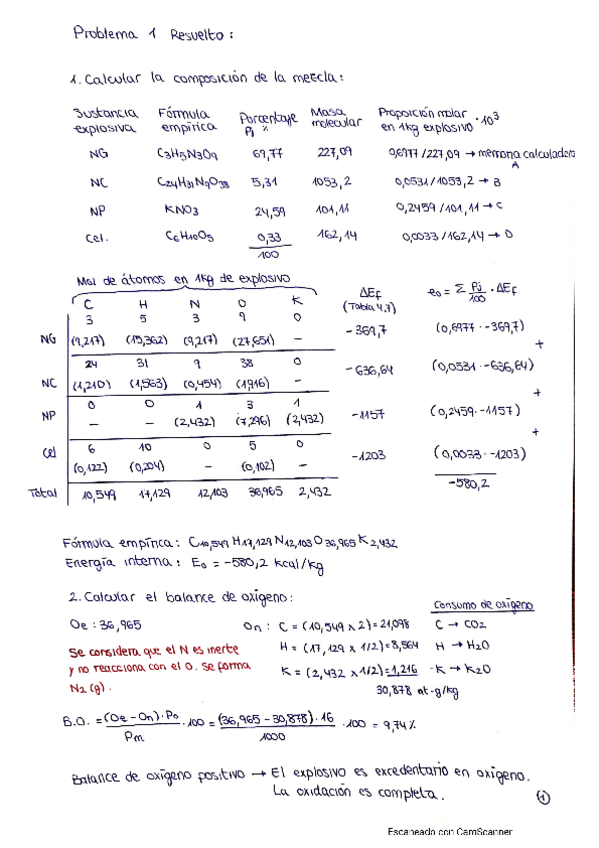 Problema 1 Resuelto:
1. Calcular la composición de la mezcla:
Sustancia explosiva Fórmula empírica Porcentaje Pj % Masa molecular Proporción molar en 1kg explosivo · 10³
NG C3H5N3O9 69,77 227,09 0,6977/227,09 → memoria calculadora A
NC C24H31N9O38 5,31 1053,2 0,0531/1053,2 → B
NP KNO3 24,59 101,11 0,2459/101,11 → C
Cel. C6H10O5 0,33 162,14 0,0033/162,14 → D
100
Mol de átomos en 1kg de explosivo
C H N O K ΔEf (Tabla 4.7) e0 = Σ Pj/100 · ΔEf
3 5 3 9 0
NG (9,217) (15,362) (9,217) (27,651) – -369,7 (0,6977 · -369,7) +
24 31 9 38 0
NC (1,210) (1,563) (0,454) (1,916) – -636,64 (0,0531 · -636,64) +
0 0 1 3 1
NP – – (2,432) (7,296) (2,432) -1157 (0,2459 · -1157) +
6 10 0 5 0
Cel (0,122) (0,204) – (0,102) – -1203 (0,0033 · -1203)
Total 10,549 17,129 12,103 36,965 2,432 -580,2
Fórmula empírica: C10,549 H17,129 N12,103 O36,965 K2,432
Energía interna: E0 = -580,2 kcal/kg
2. Calcular el balance de oxígeno: Consumo de oxígeno
Oe: 36,965 On: C = (10,549 x 2) = 21,098 C → CO2
Se considera que el N es inerte H = (17,129 x 1/2) = 8,564 H → H2O
y no reacciona con el O. Se forma K = (2,432 x 1/2) = 1,216 K → K2O
N2 (g). 30,878 at-g/kg
B.O. = (Oe - On) · Po / Pm · 100 = (36,965 - 30,878) · 16 / 1000 · 100 = 9,74 %
Balance de oxígeno positivo → El explosivo es excedentario en oxígeno.
La oxidación es completa.
1
Escaneado con CamScanner